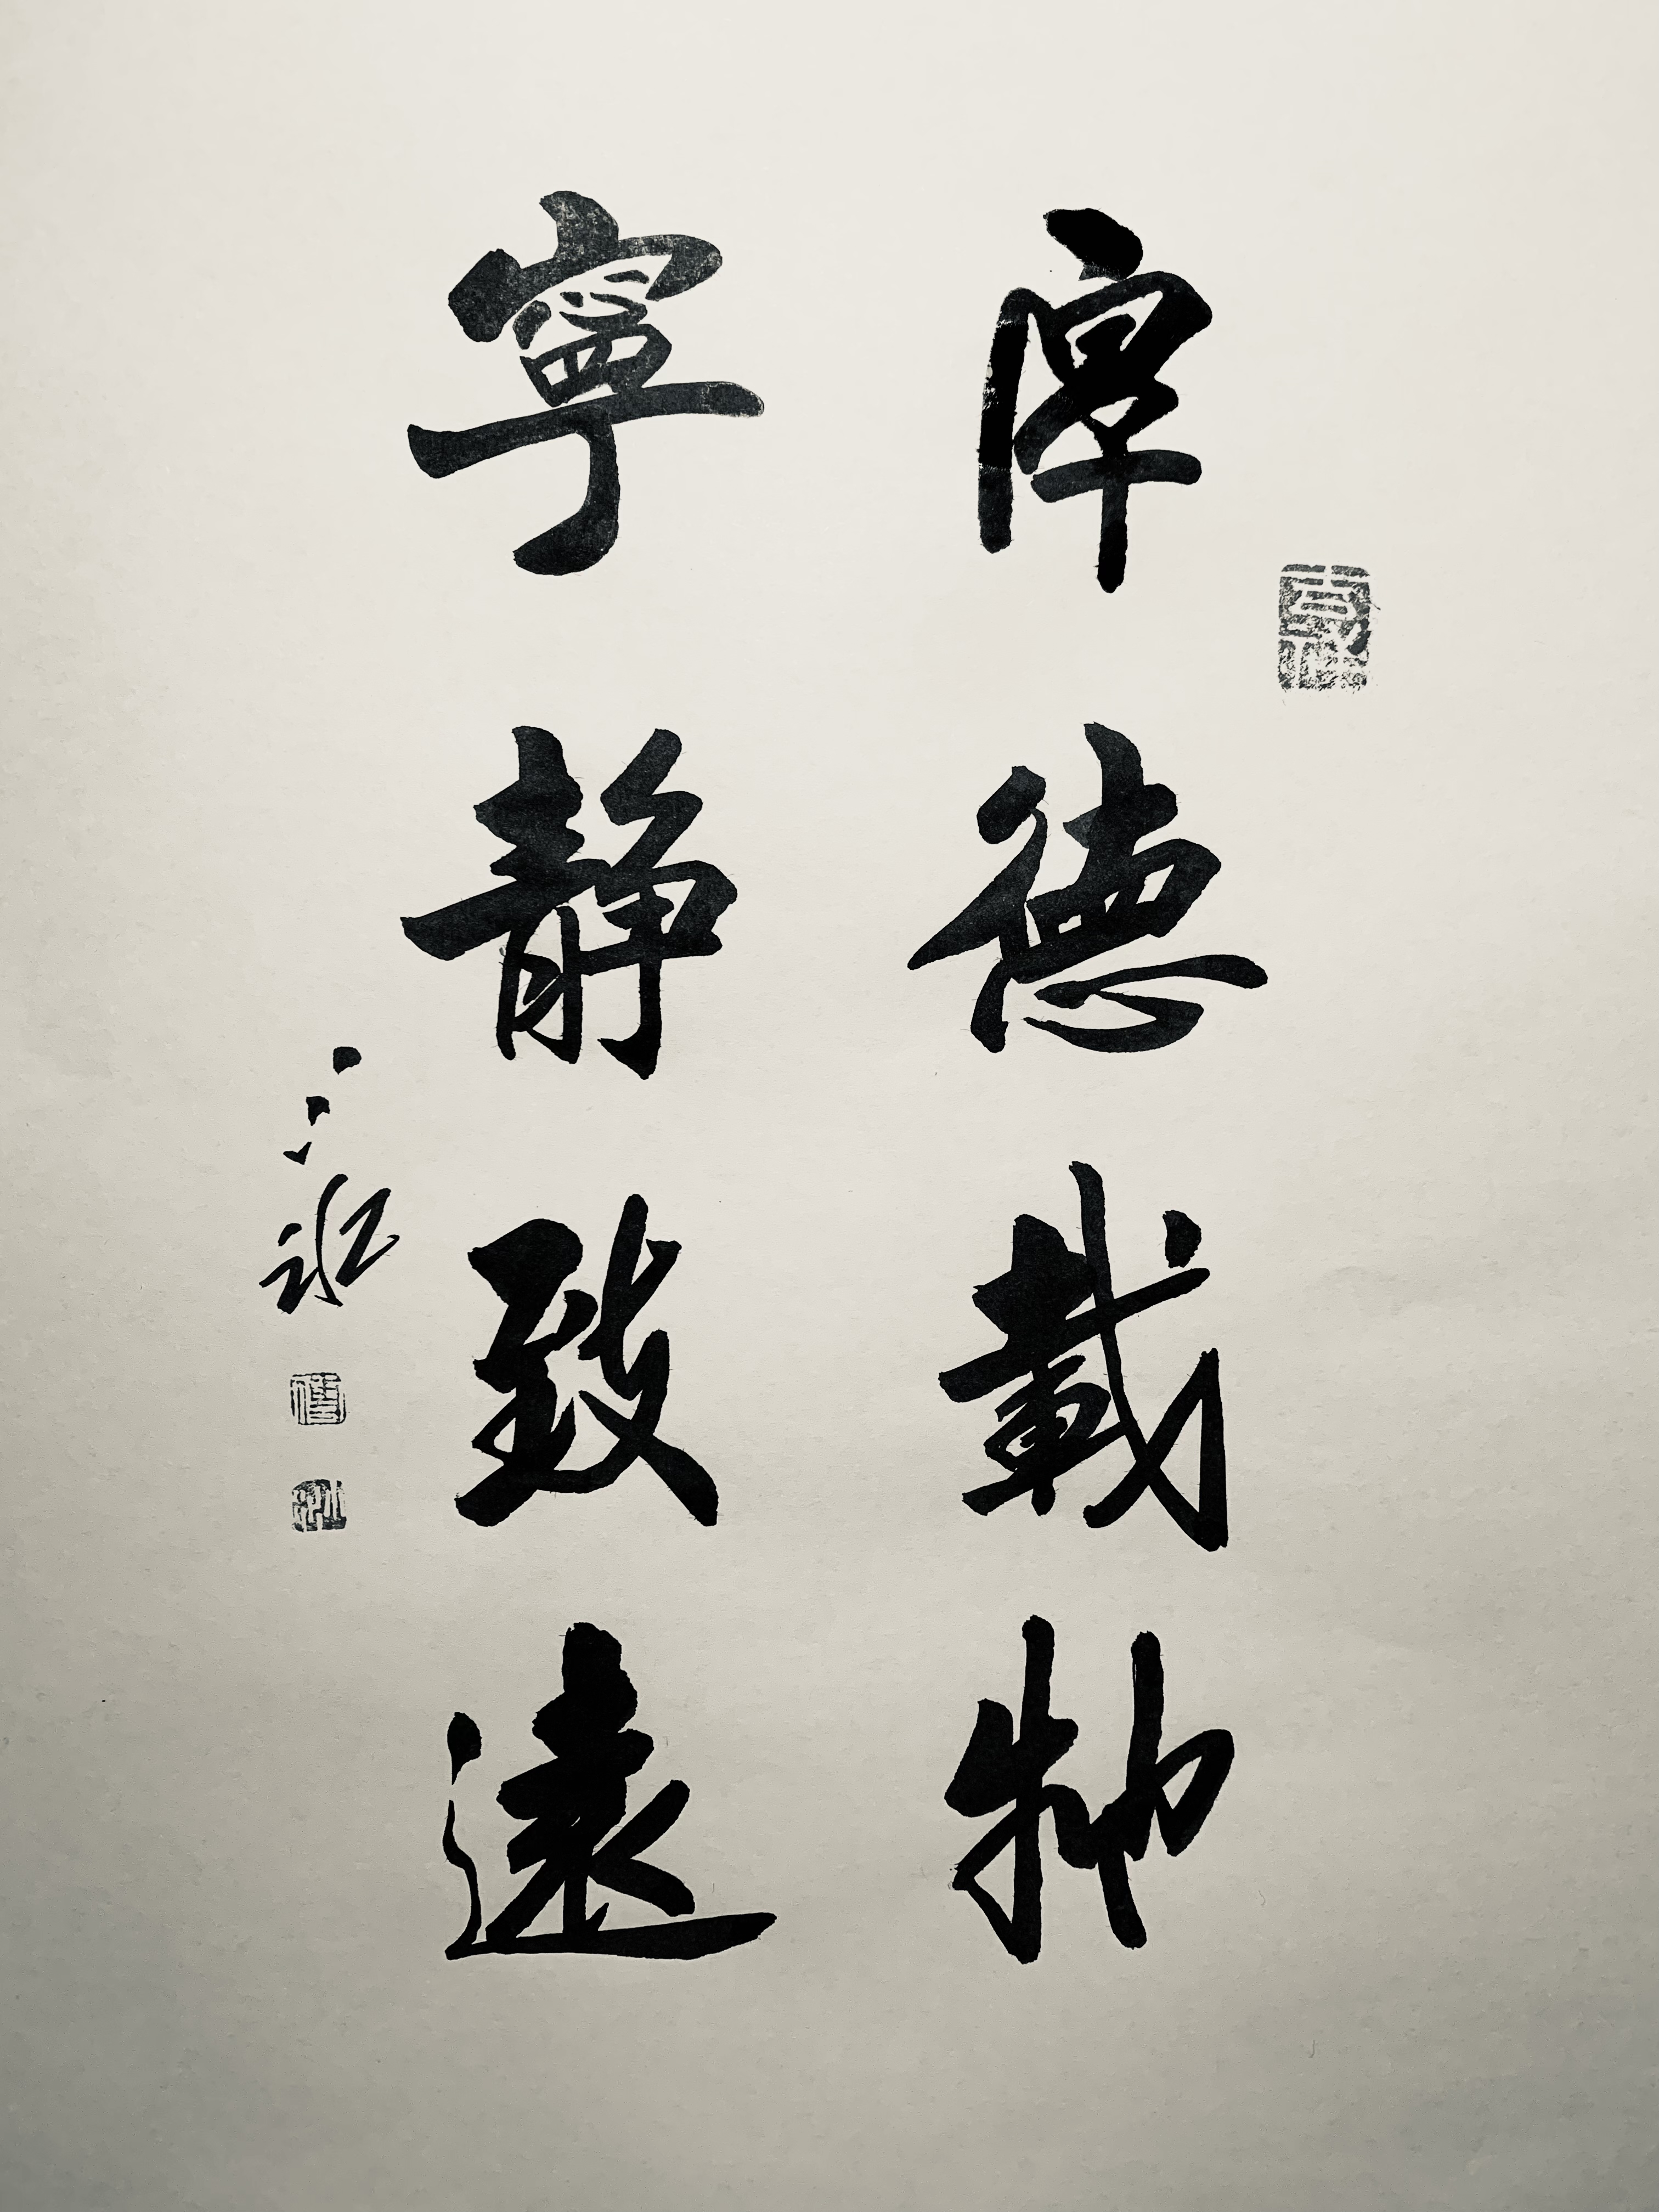 厚德載物
寧靜致遠